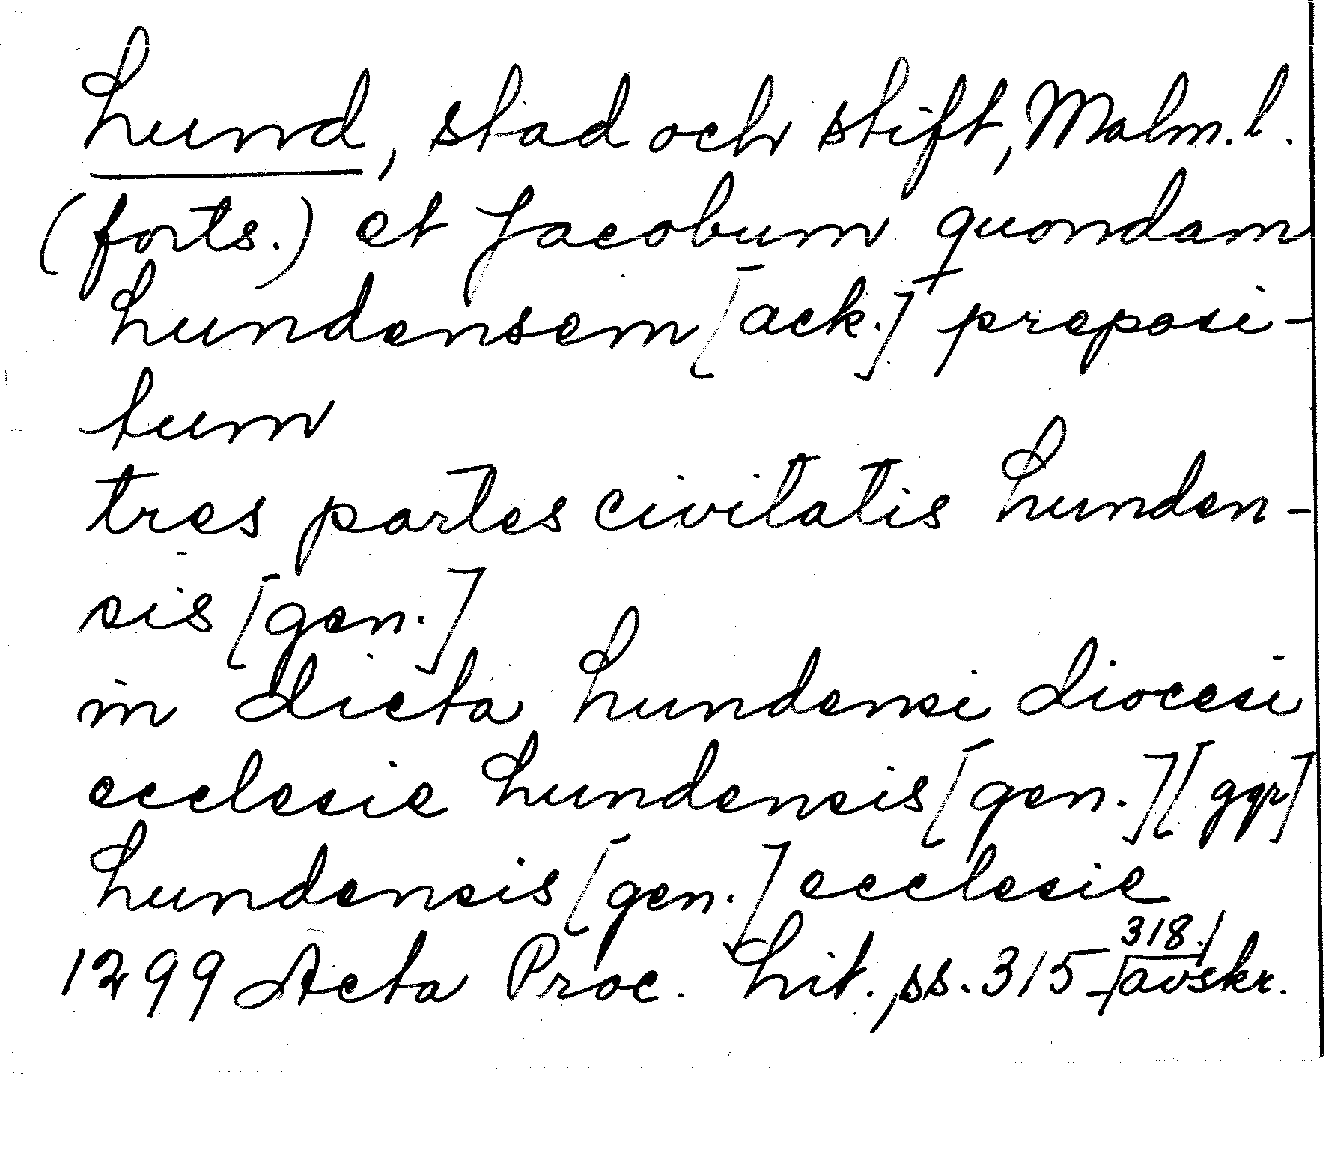 Lund, stad och stift, Malm. l.
(forts.) et Jacobum quondam
Lundensem [ack.] preposi-
tum
tres partes civitatis Lunden-
sis [gen.]
in dicta Lundensi diocesi
ecclesie Lundensis [gen.] [ggr]
Lundensis [gen.] ecclesie
1299 Acta Proc. Lit. ss. 315-318./avskr.